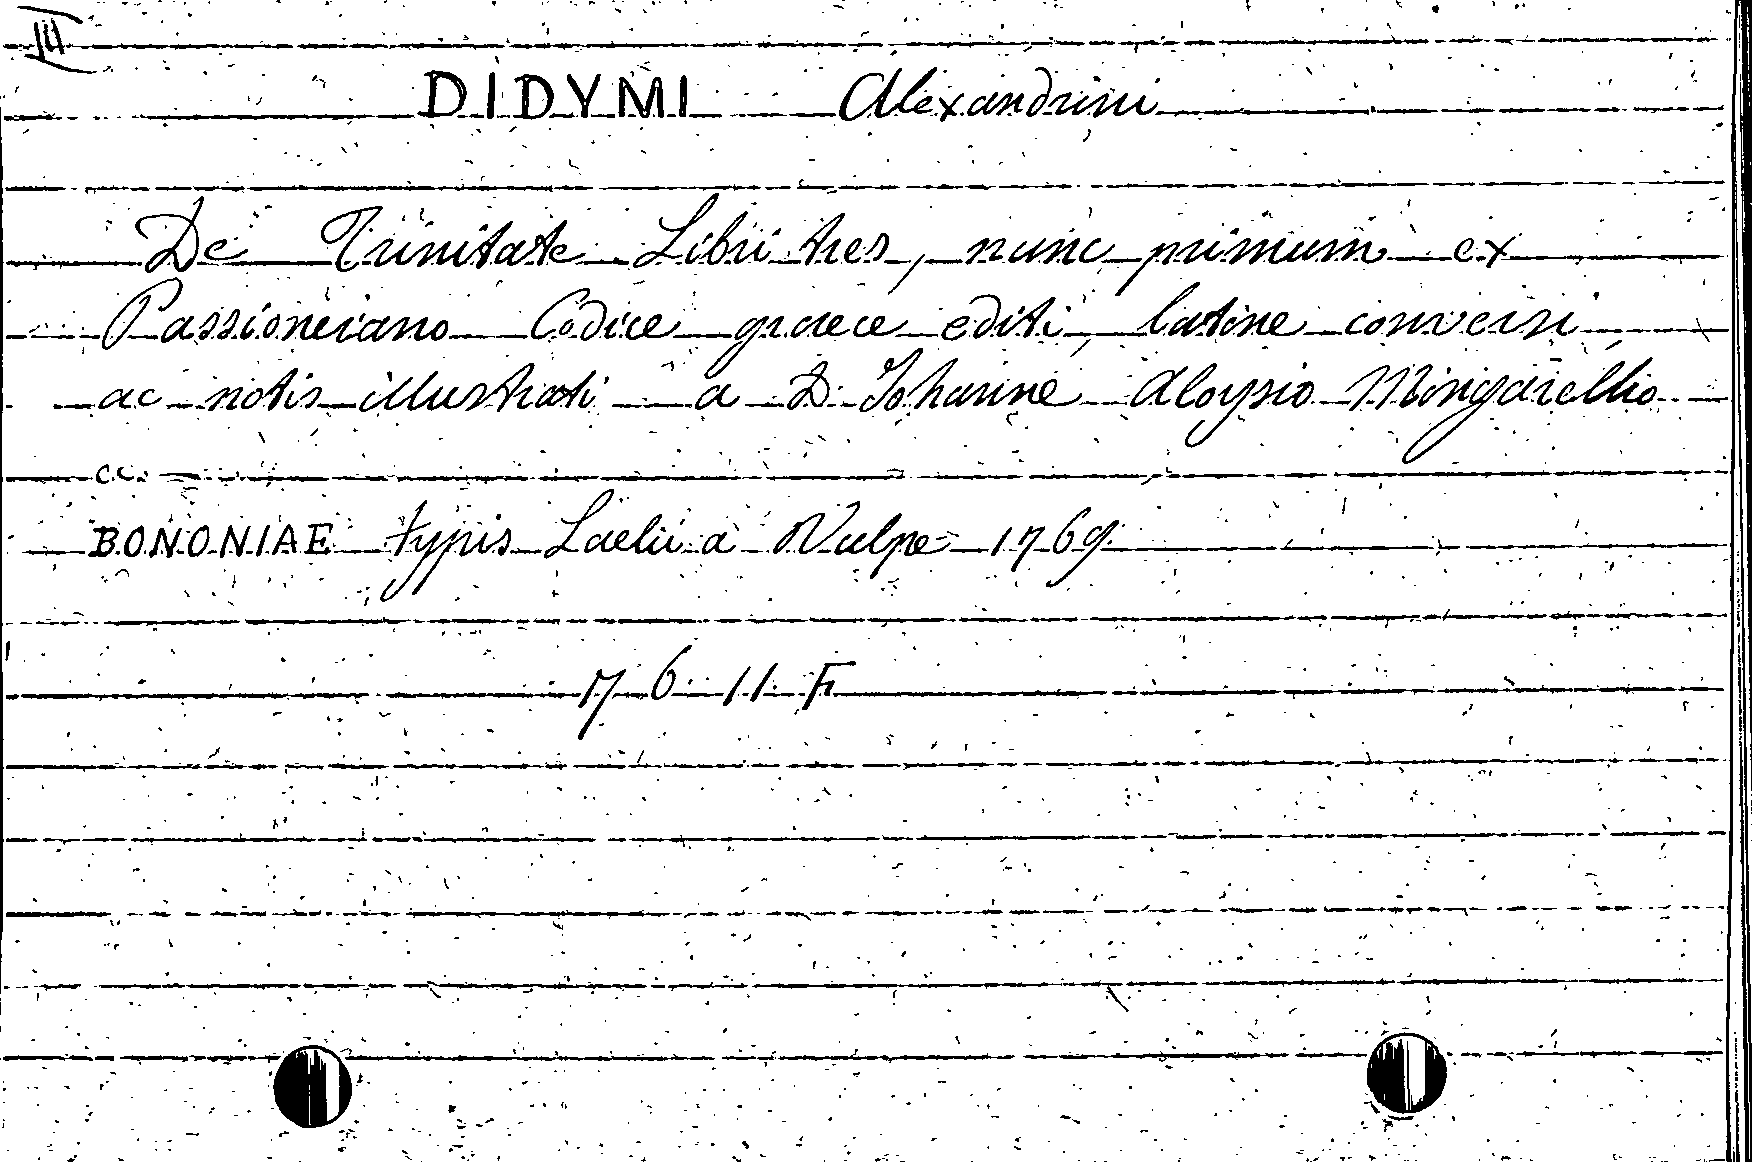 III
DIDYMI Alexandrini
De Trinitate Libri tres, nunc primum ex
Passioneiano Codice graece editi, latine conversi,
ac notis illustrati a D. Iohanne Aloysio Mingarellio
BONONIAE typis Laelii a Vulpe 1769.
17 6 11 F